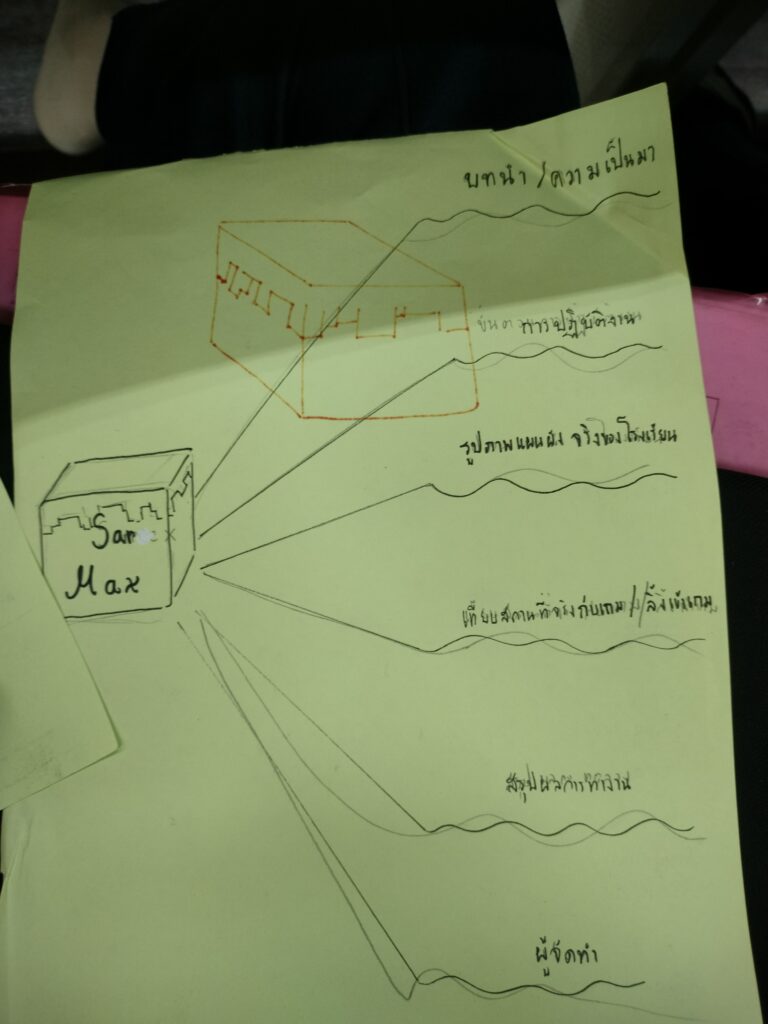 บทนำ/ความเป็นมา
การปฏิบัติงาน
รูปภาพแผนผัง จริงของโรงเรียน
เทียบสถานที่จริงกับเกม//ลิ้งเข้าเกม
San
Max
สรุปผลการทำงาน
ผู้จัดทำ